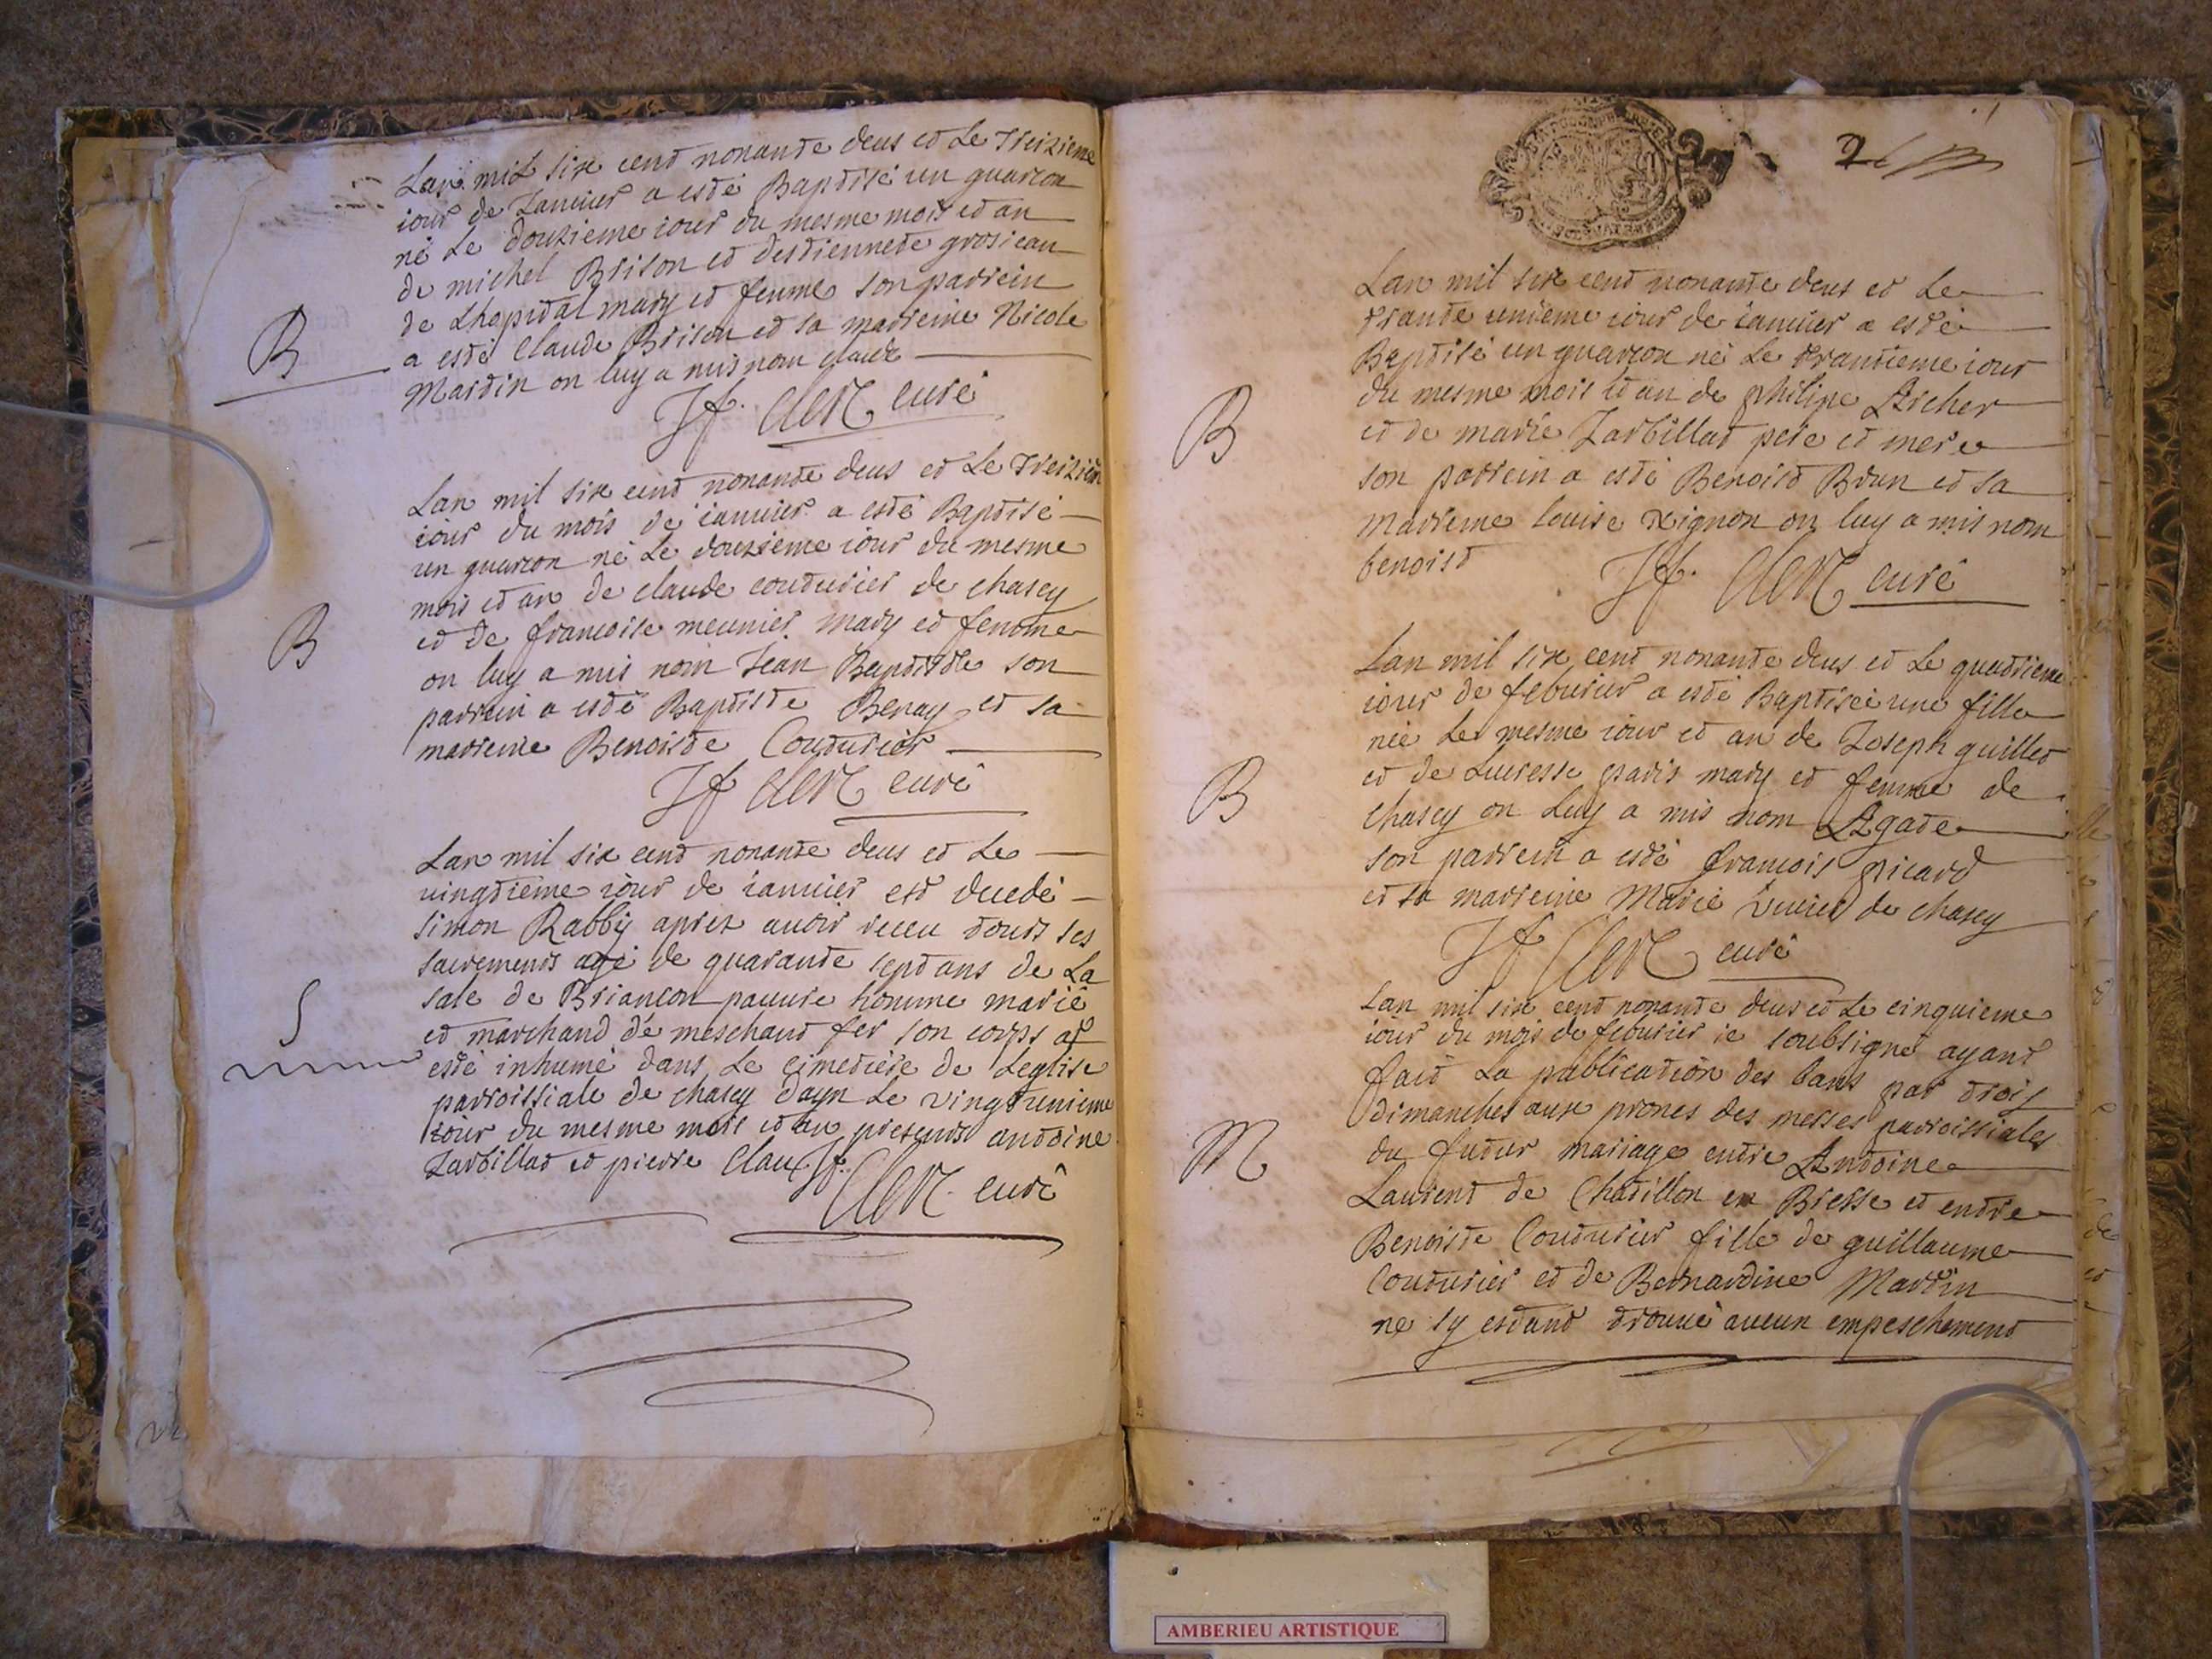 Lan mil six cent nonante deus et Le treizieme
iour de Januier a esté Baptisé un guarcon
né Le douzieme iour du mesme mois et an
de michel Brison et destiennete grosiean
de Lhopital mary et femme son parrein
a esté Claude Brison et sa marreine Nicole
Martin on luy a mis nom claude
B
Jf. Clert curé
Lan mil six cent nonante deus et Le treizie
iour du mois de ianuier a esté Baptisé
un guarcon né Le douzieme iour du mesme
mois et an de claude couturier de chasey
et de francoise meunier mary et femme
on luy a mis nom Jean Baptiste son
parrein a esté Baptiste Benay et sa
marreine Benoiste Couturier
B
Jf Clert curé
Lan mil six cent nonante deus et Le
uingtieme iour de ianuier est decedé
simon Rabby apres auoir receu touts ses
sacrements agé de quarante sept ans de La
sale de Briancon pauure homme marié
et marchand de meschant fer son corps at
esté inhumé dans Le cimetiere de Leglise
parroissiale de chasey dayn Le vingtunieme
iour du mesme mois et an presents antoine
Jarbillat et pierre Clau
S
Jf. Clert curé
2
Lan mil six cent nonante deus et Le
trante unieme iour de ianuier a esté
Baptisé un guarcon né Le trantieme iour
du mesme mois et an de philipe Archer
et de marie Jarbillat pere et mere
son parrein a esté Benoist Brun et sa
marreine Louise on luy a mis nom
benoist
B
Jf. Clert curé
Lan mil six cent nonante deus et Le quatrieme
iour de feburier a esté Baptiseé une fille
neé Le mesme iour et an de Joseph guillet
et de Lucresse paris mary et femme de
chasey on Luy a mis nom Agate
son parrein a esté francois picard
et sa marreine Marie de chasey
B
Jf Clert curé
Lan mil six cent nonante deus et Le cinquieme
iour du mois de feburier ie soubsigné ayant
fait La publication des bans par trois
dimanches aux prones des messes parroissiales
du futur mariage entre Antoine
Laurent de Chatillon en Bresse et entre
Benoiste Couturier fille de guillaume
Couturier et de Bernardine Martin
ne sy estant trouué aucun empeschement
M
AMBERIEU ARTISTIQUE